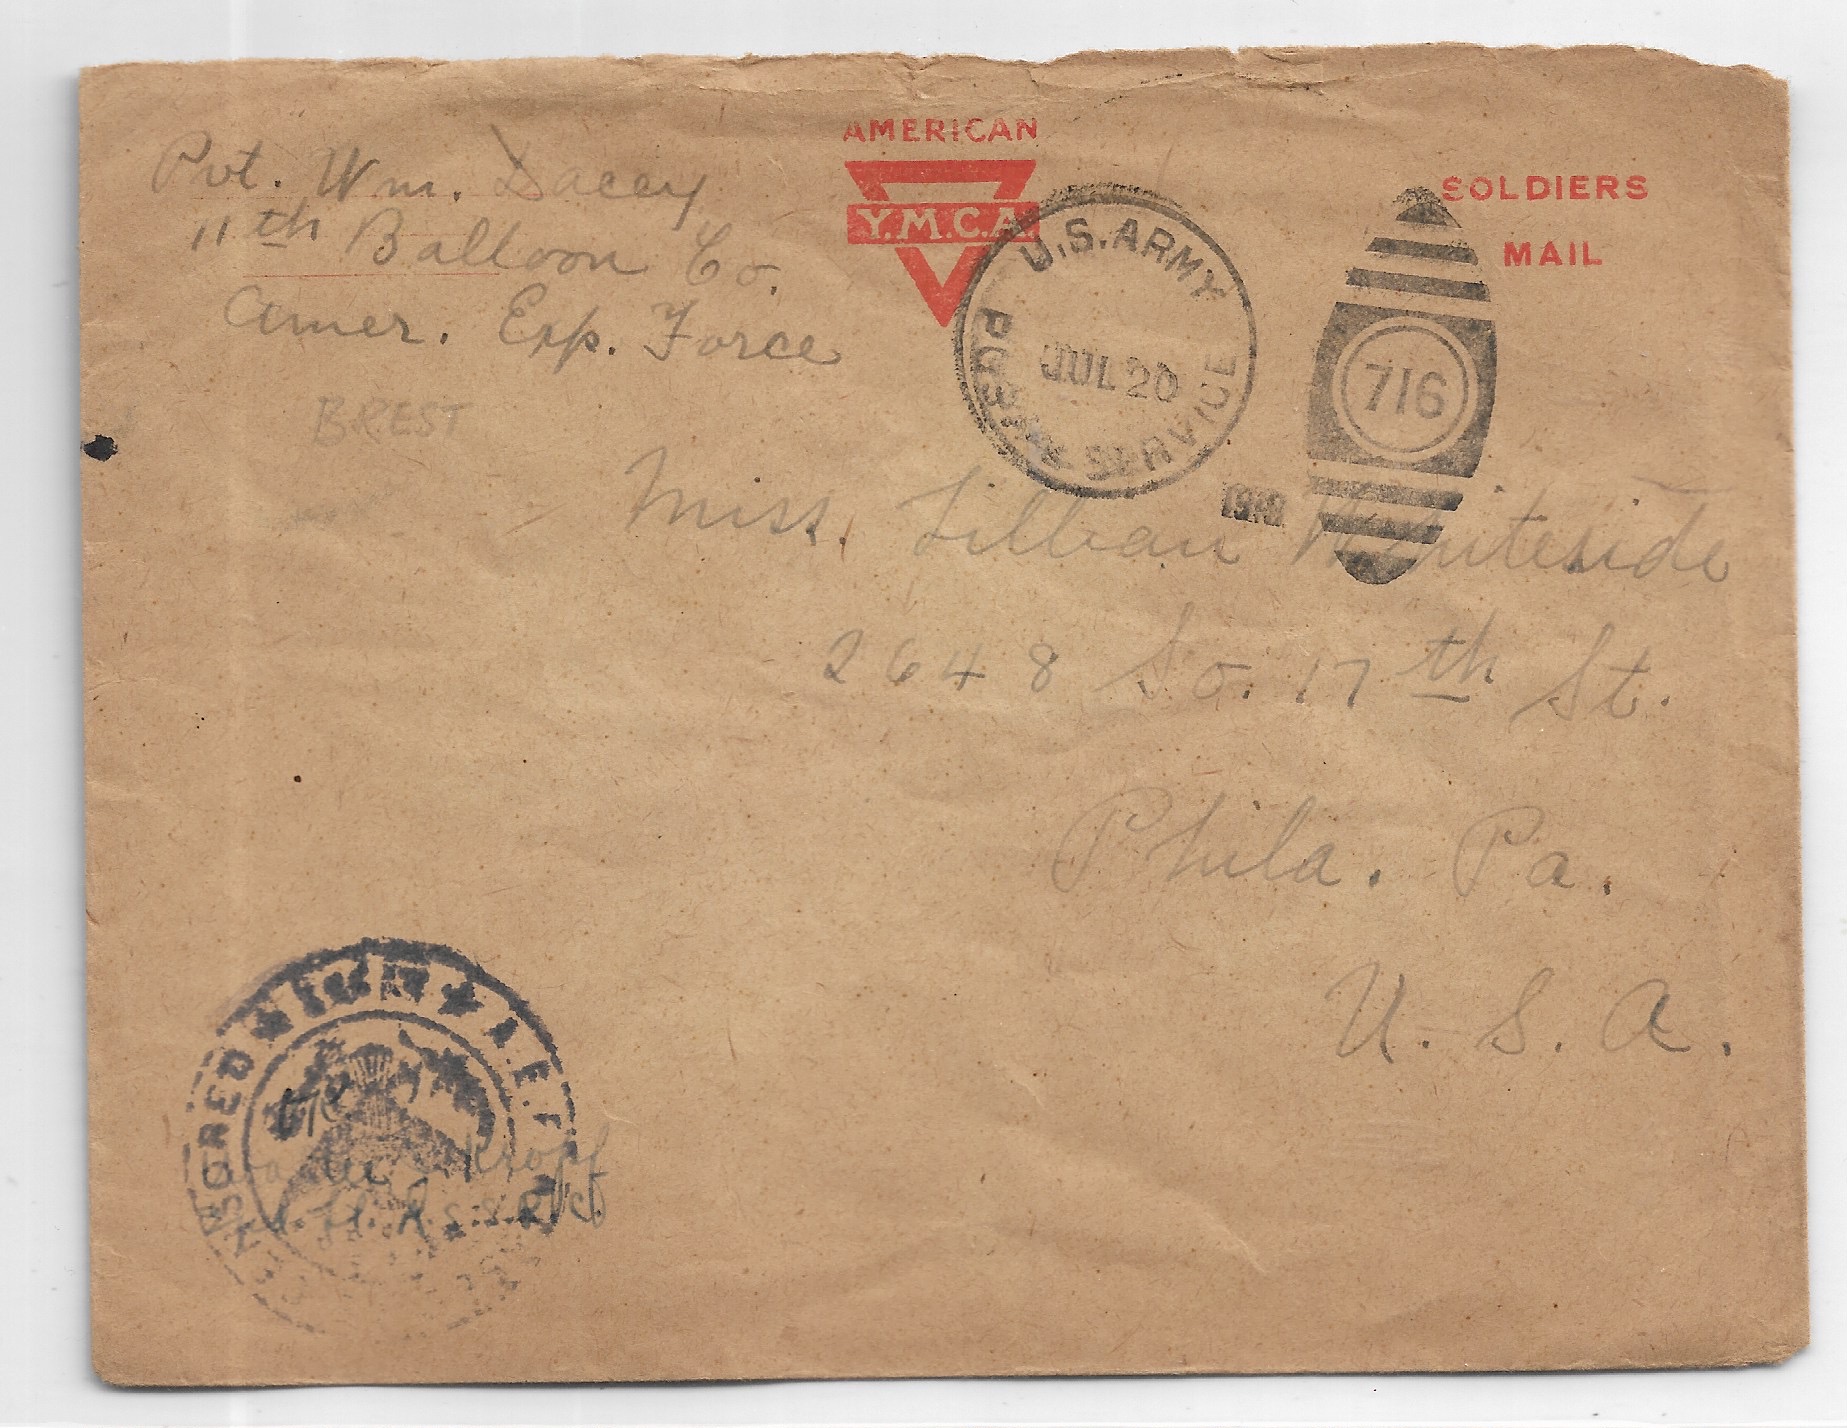 Pvt. Wm. Dacey
11th Balloon Co.
Amer. Exp. Force
BREST
AMERICAN
Y.M.C.A.
U.S. ARMY
POSTAL SERVICE
JUL 20
716
SOLDIERS
MAIL
Miss. Lillian Whiteside
2648 So. 17th St.
Phila. Pa.
U. S. A.
CENSORED
A.E.F.